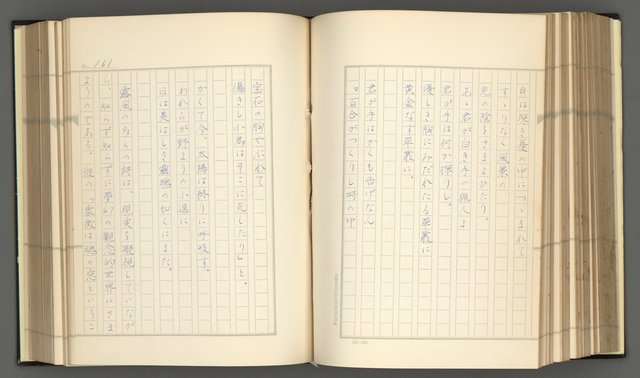 身は深き憂の中につゝまれて
すゝりなく風景の
光の陰をさまよひたり。
あゝ君が白き手の
君が手は何か探りし。
優しき胸にみだれたる草叢に
黄金なす草叢に。
君が手はかくも告げなん
百合がつくりし時の中
No. 161
宝石の胸でふれて
傷きし小鳥はそこに死したり』と。
かくて今、太陽は終りに呼吸す。
われらが野よりの小道に
日は美はしき 魂の如くにまた。
露風の多くの詩は、現実を凝視していなが
ら、知らず知らずに夢幻の観念的世界にさま
ようのである。彼の「 は魂の窓というこ